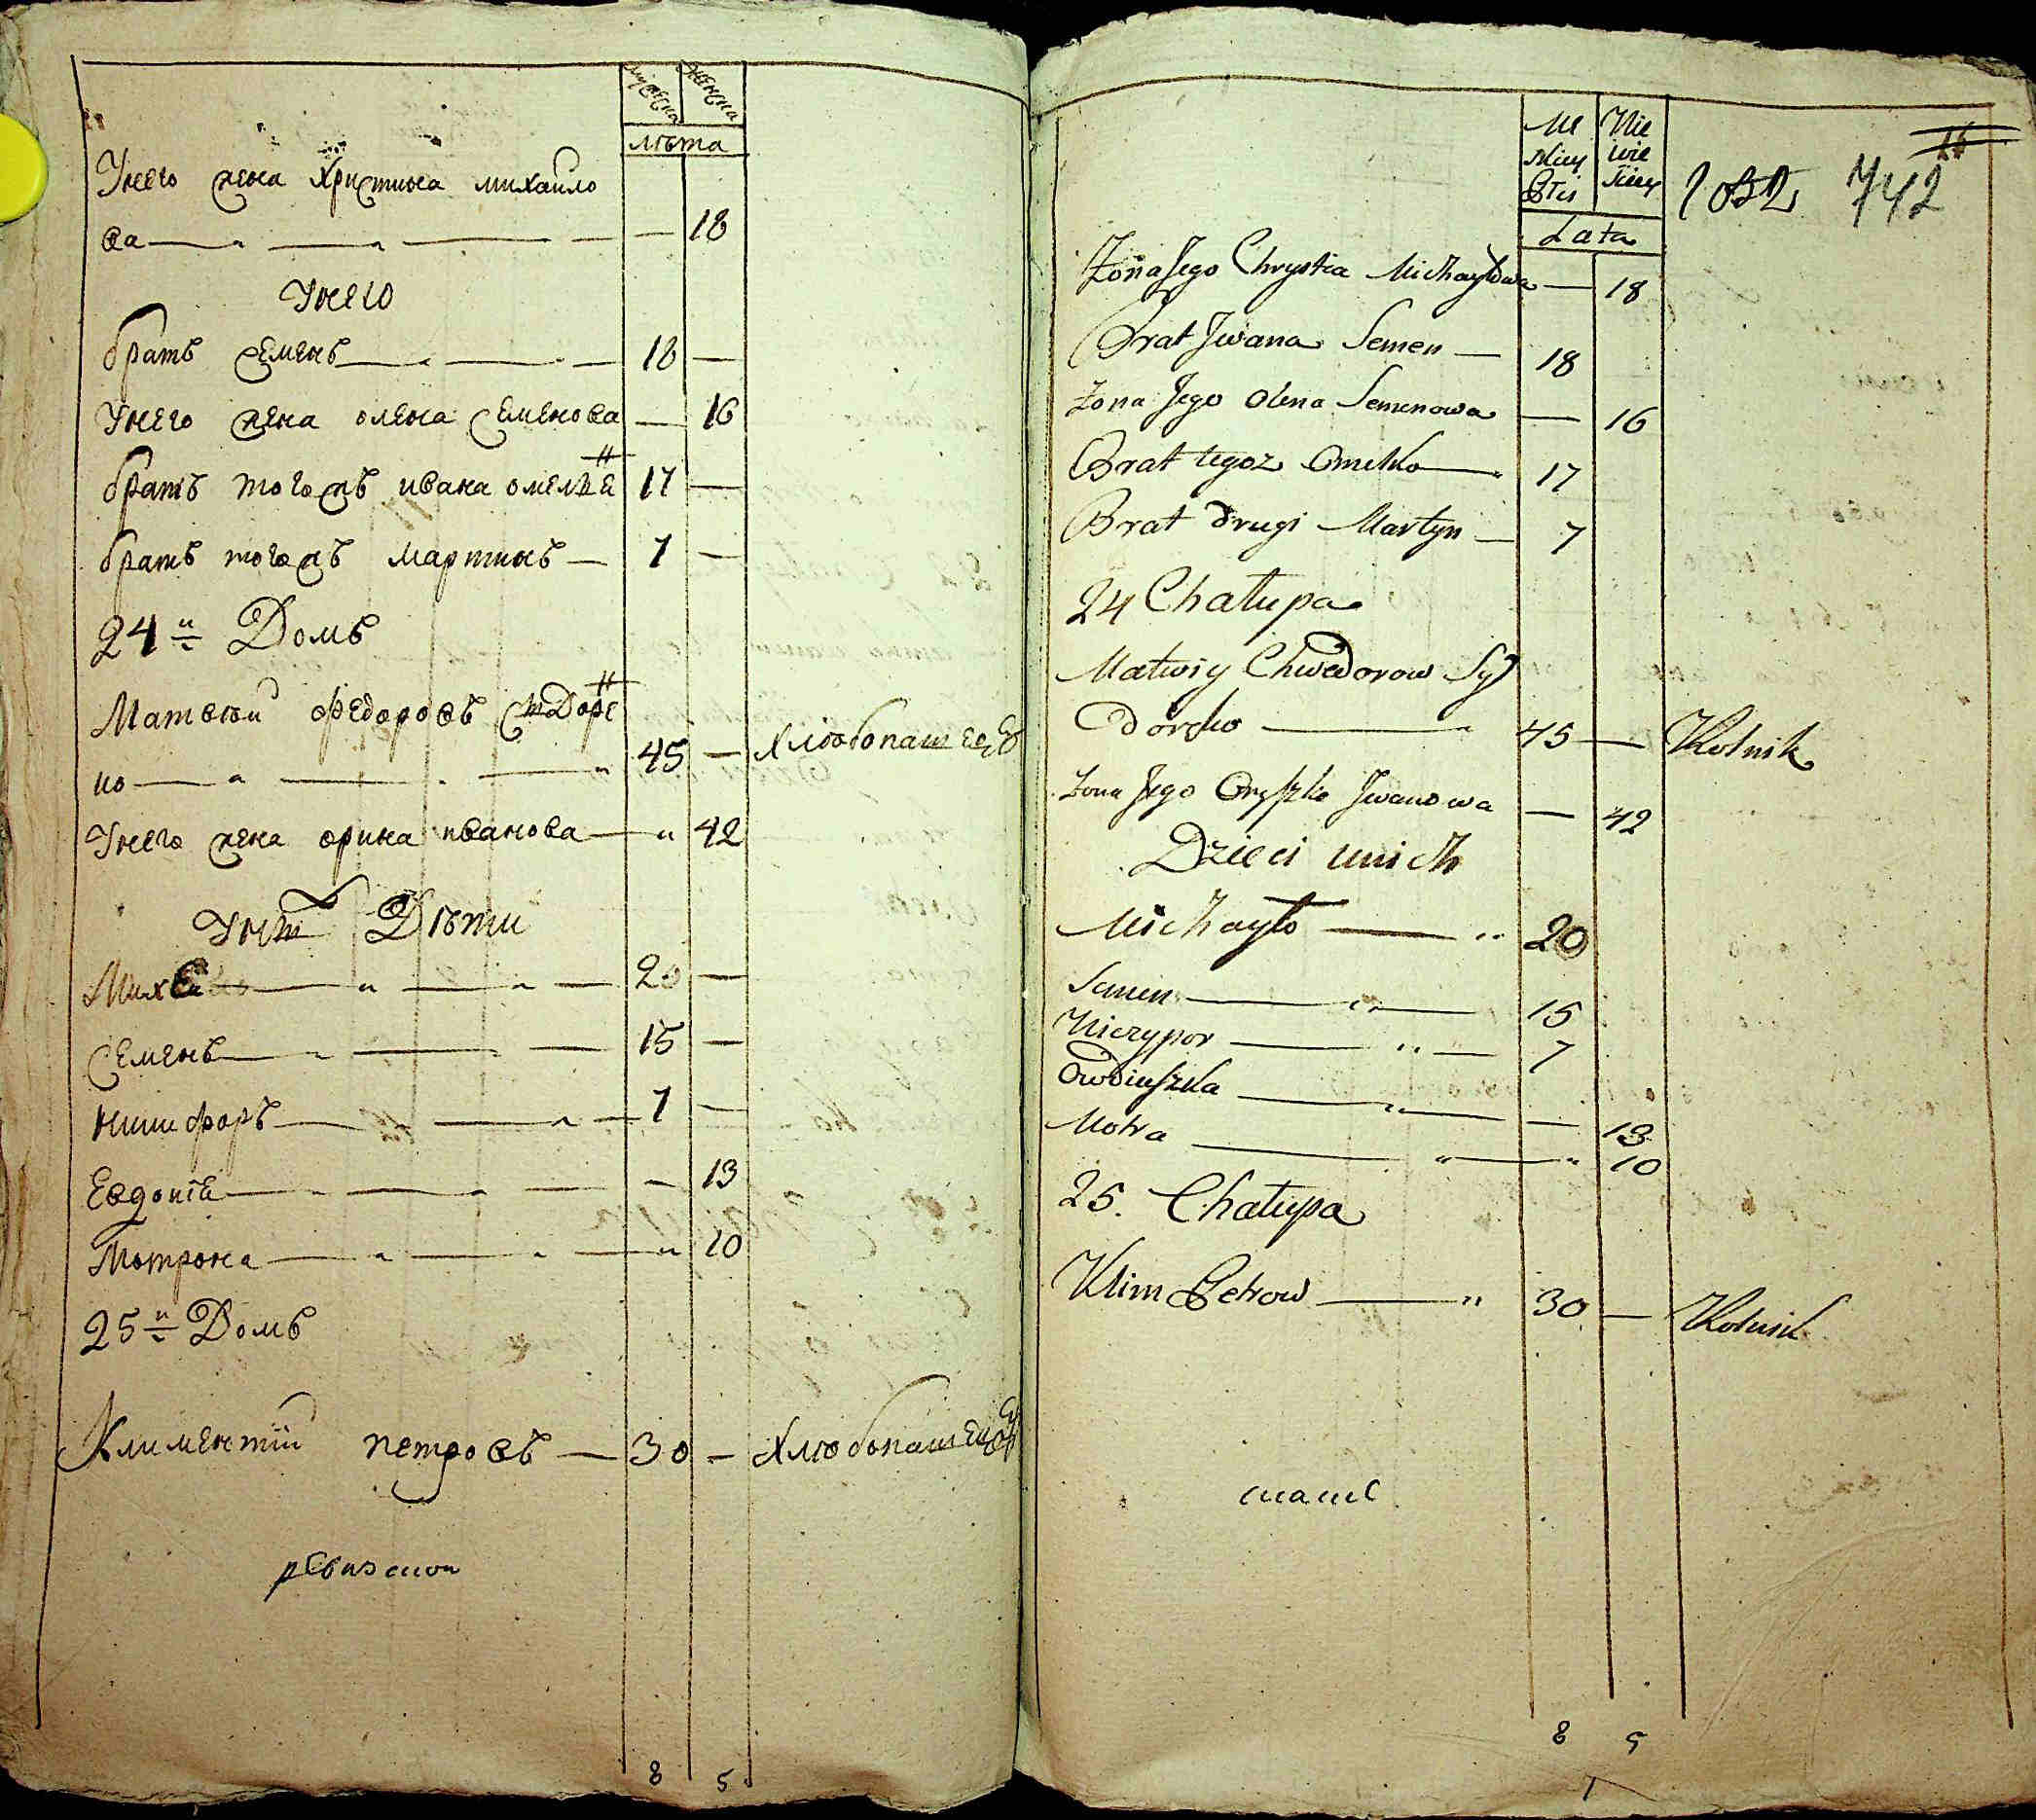 мужеска женска
лѣта
Унего жена Христина михайло
ва — — 18
Унего
братъ Семенъ — 18 —
Унего жена олена Семенова — 16
братъ тогожъ ивана омелке 17 —
братъ тогожъ мартинъ — 7 —
24й Домъ
Матвѣй Федоровъ Сидоре
нко — 45 — хлѣбопашецъ
Унего жена орина иванова — 42
Унихъ Дѣти
Миха — 20 —
Семенъ — 15 —
Никифоръ — 7 —
Евдокія — 13
Мотрона — 10
25й Домъ
Климентїй петровъ — 30 — Хлѣбопашецъ
ревизкои
8 5
Me Nie
skiey wie
Płciściey
Lata
16
742
Żona Jego Chrystia Michayłowa — 18
Brat Jwana Semen — 18
Żona Jego Olena Semenowa — 16
Brat tegoz Omelko — 17
Brat drugi Martyn — 7
24 Chałupa
Matwiy Chwedorow Sy
dorko — 45 — Rolnik
Żona Jego Oryszka Jwanowa — 42
Dzieci unich
Michayło — 20
Semen — 15
Niczypor — 7
Owdiuszka — 13
Motra — 10
25. Chałupa
Klim Petrow — 30 — Rolnik
8 5